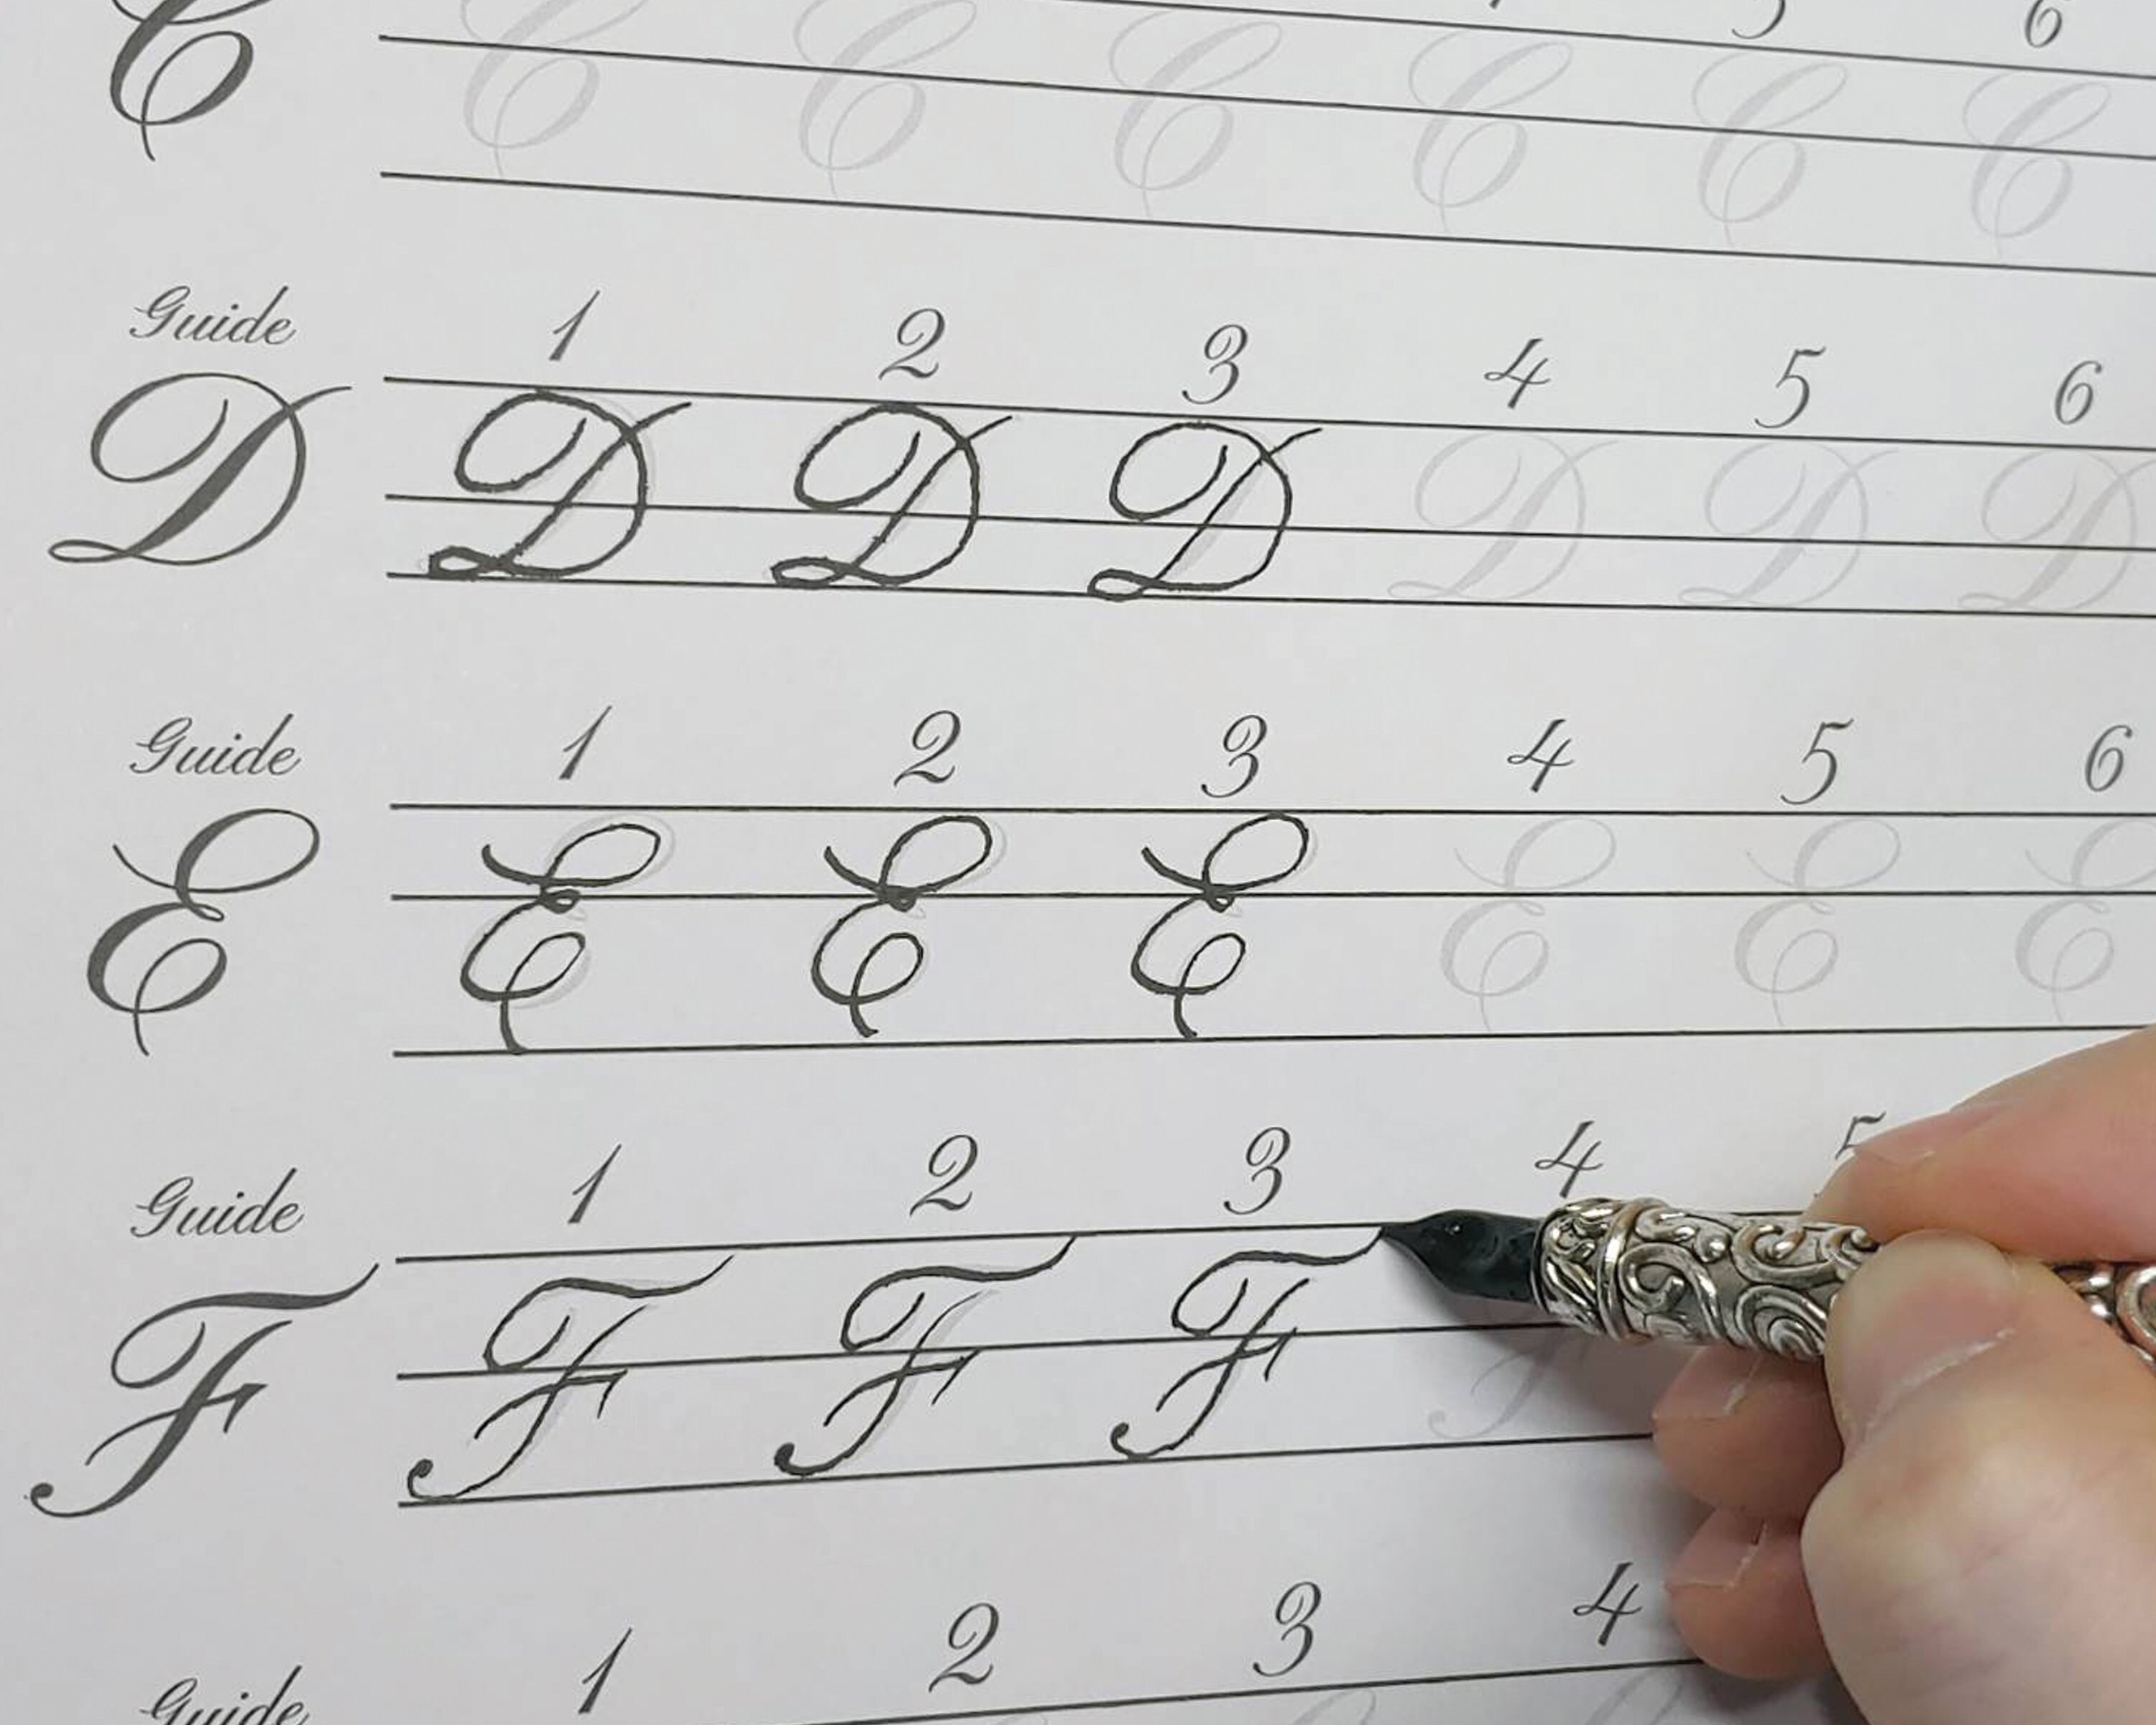 5 6
C C C C C C C
Guide 1 2 3 4 5 6
D D D D D D D
Guide 1 2 3 4 5 6
E E E E E E E
Guide 1 2 3 4 5
F F F F F
Guide 1 2 3 4